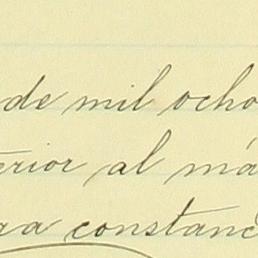 de mil ocho
terior al má
ra constanc